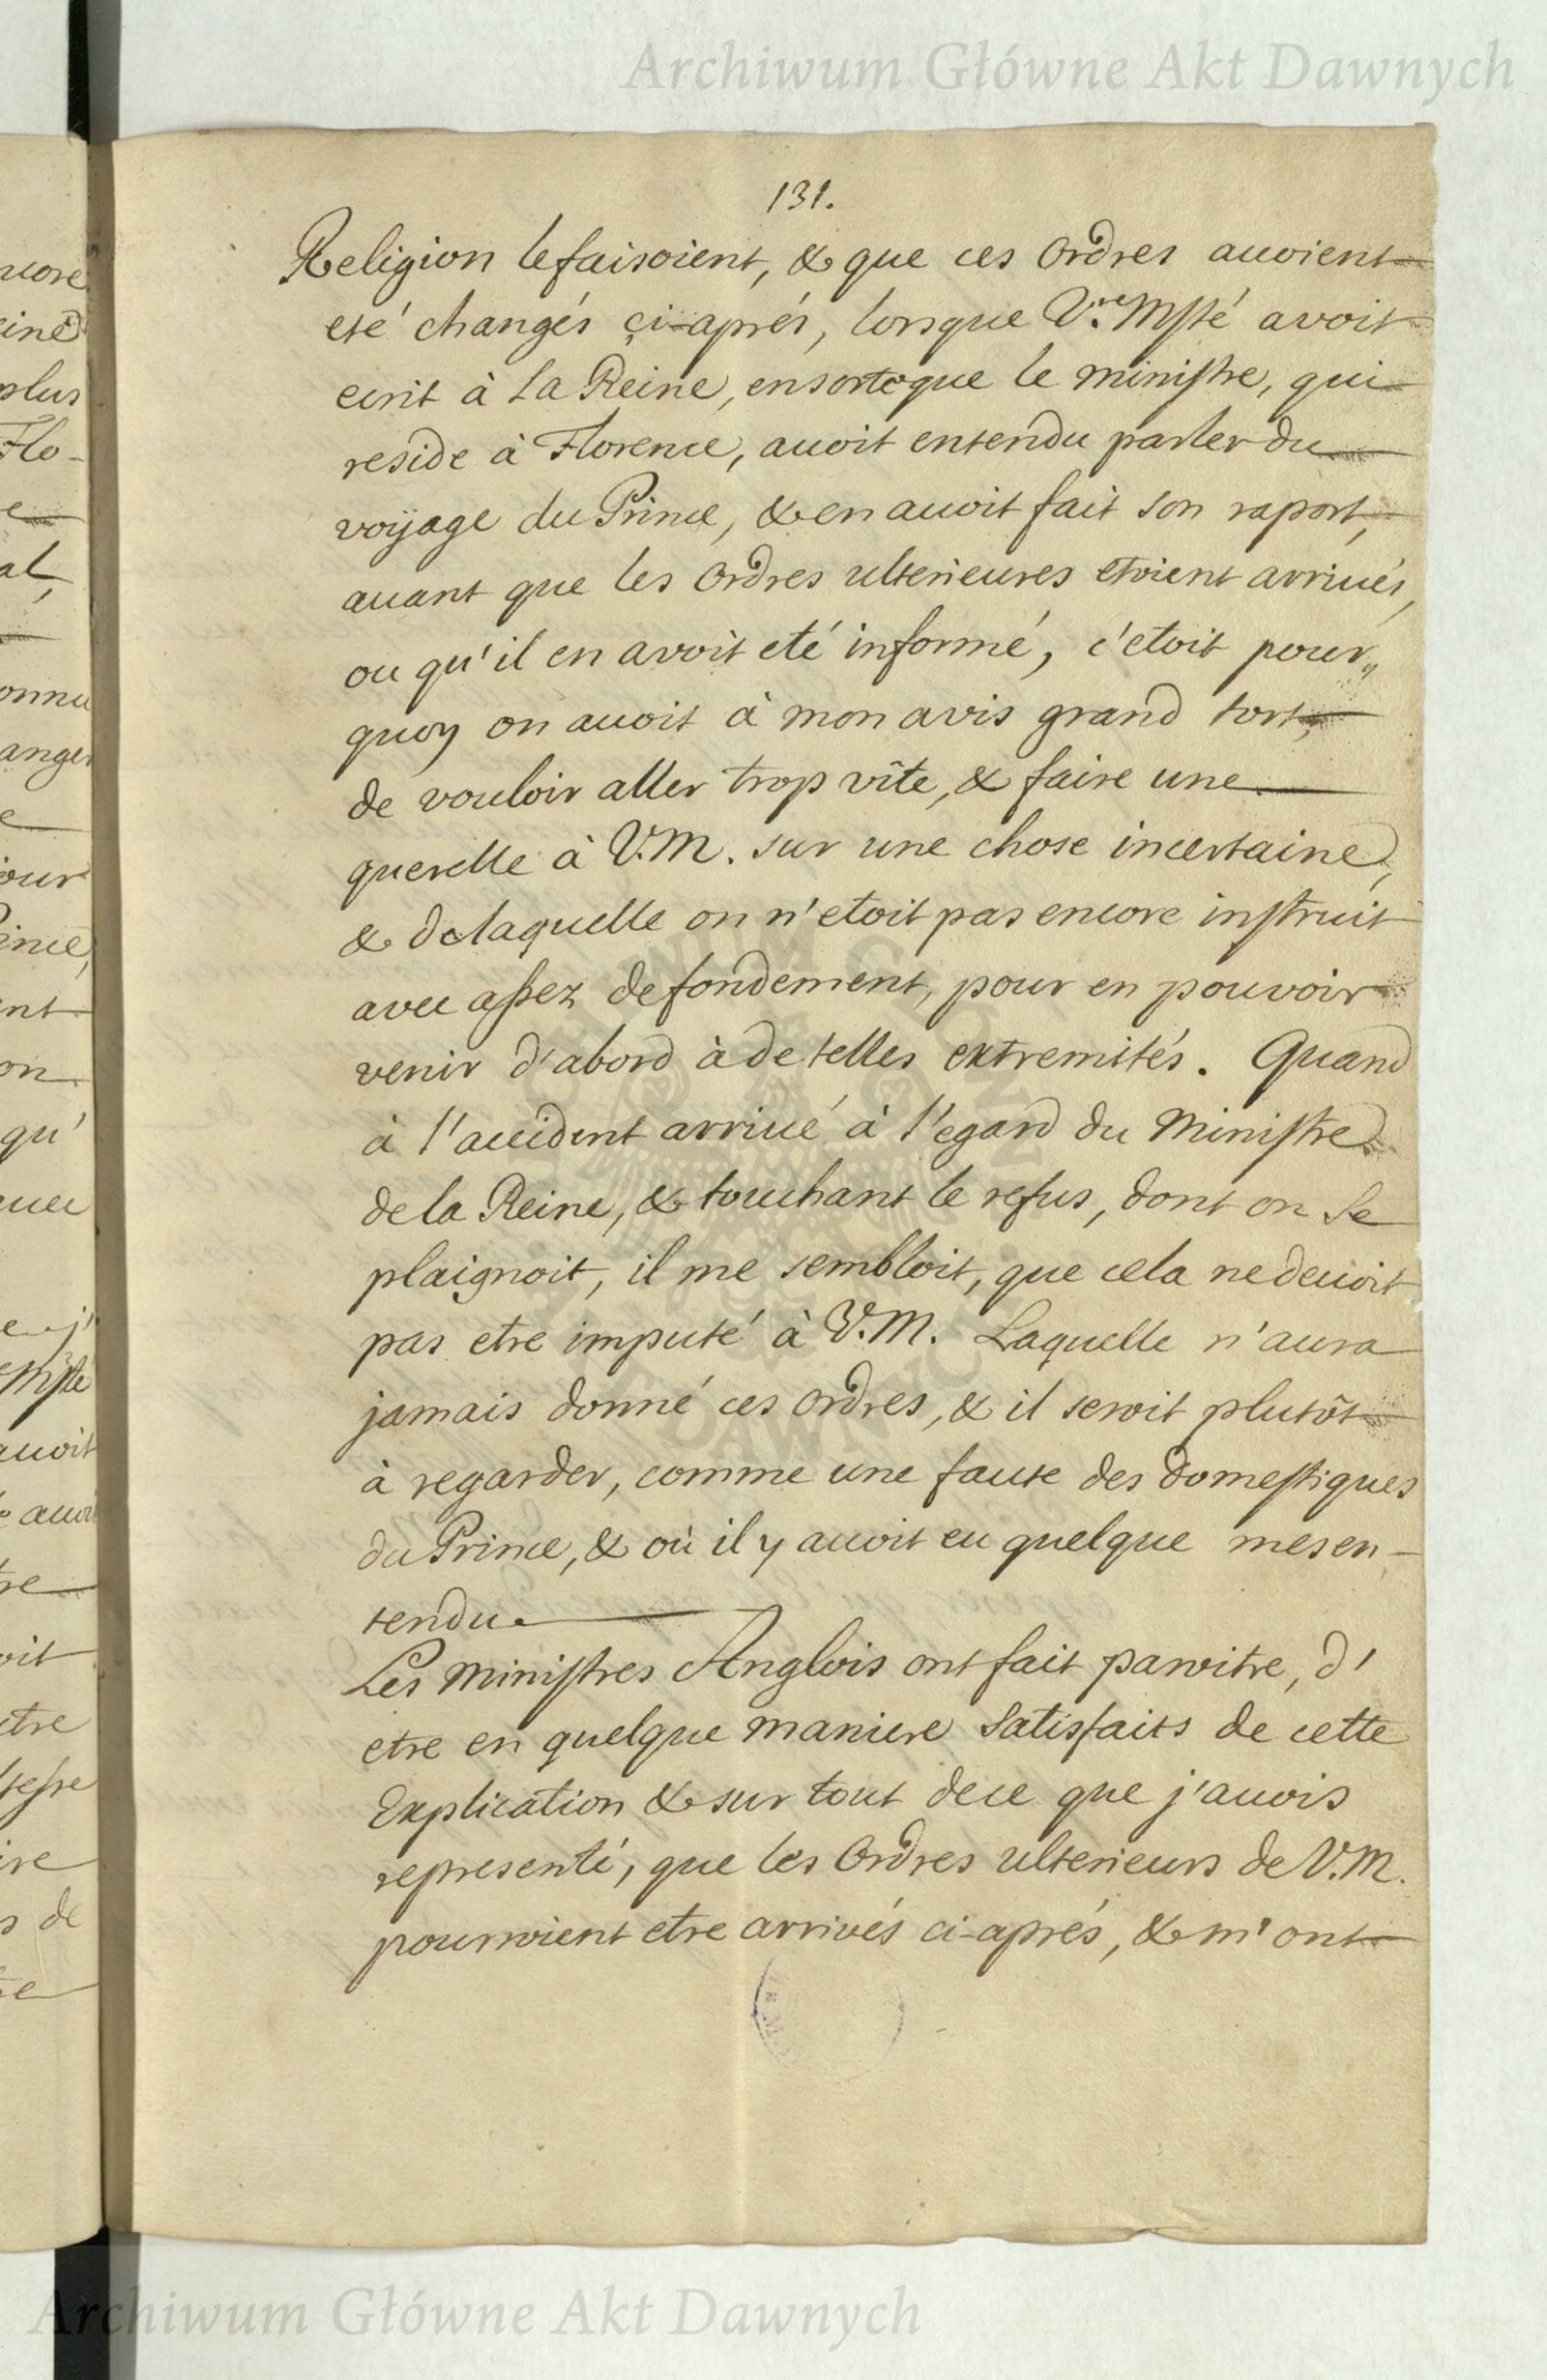 Archiwum Główne Akt Dawnych
131.
Religion le faisoient, & que ces Ordres auoient
eté changés çi-aprés, lorsque V.re Msté avoit
ecrit à La Reine, ensorteque le ministre, qui
reside à Florence, auoit entendu parler du
voÿage du Prince, & en auoit fait son raport,
auant que les Ordres ulterieures etoient arriués,
ou qu'il en avoit eté informé, c'etoit pour„
quoy on auoit à mon avis grand tort,
de vouloir aller trop vîte, & faire une
querelle à V.M. sur une chose incertaine,
& de laquelle on n'etoit pas encore instruit
avec assez de fondement, pour en pouvoir
venir d'abord à de telles extremités. Quand
à l'accident arriué à l'egard du Ministre
de la Reine, & touchant le refus, dont on se
plaignoit, il me sembloit, que cela ne deuoit
pas etre imputé à V.M. Laquelle n'aura
jamais donné ces Ordres, & il seroit plutôt
à regarder, comme une faute des Domestiques
du Prince, & où il y auoit eu quelque mesen-
tendu.
Les Ministres Anglois ont fait paroitre, d'
etre en quelque maniere satisfaits de cette
Explication & sur tout de ce que j'auois
representé, que les Ordres ulterieurs de V.M.
pourroient etre arrivés ci-aprés, & m'ont
Archiwum Główne Akt Dawnych